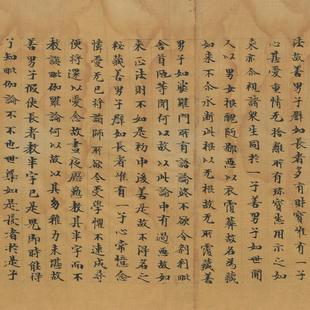 法故善男子譬如長者多有財寶唯有一子
心甚愛重情无捨離所有珎寶悉用示之如
來亦尒視諸衆生同於一子善男子如世間
人以男女根醜陋鄙惡以衣覆蔽故名為藏
如來不尒永斷此根以无根故无所覆藏善
男子如婆羅門所有語論終不欲令剎利毗
舍首陁等聞何以故以此論中有過惡故如
來正法則不如是初中後善是故不得名之
祕藏善男子譬如長者唯有一子心常憶念
憐愛无已將詣師所欲令受學懼不速成尋
便將還以愛念故晝夜慇懃教其半字而不
教誨毗伽羅論何以故以其幼稚力未堪故
善男子假使長者教半字已是兒即時能得
了知毗伽論不不也世尊如是長者於是子